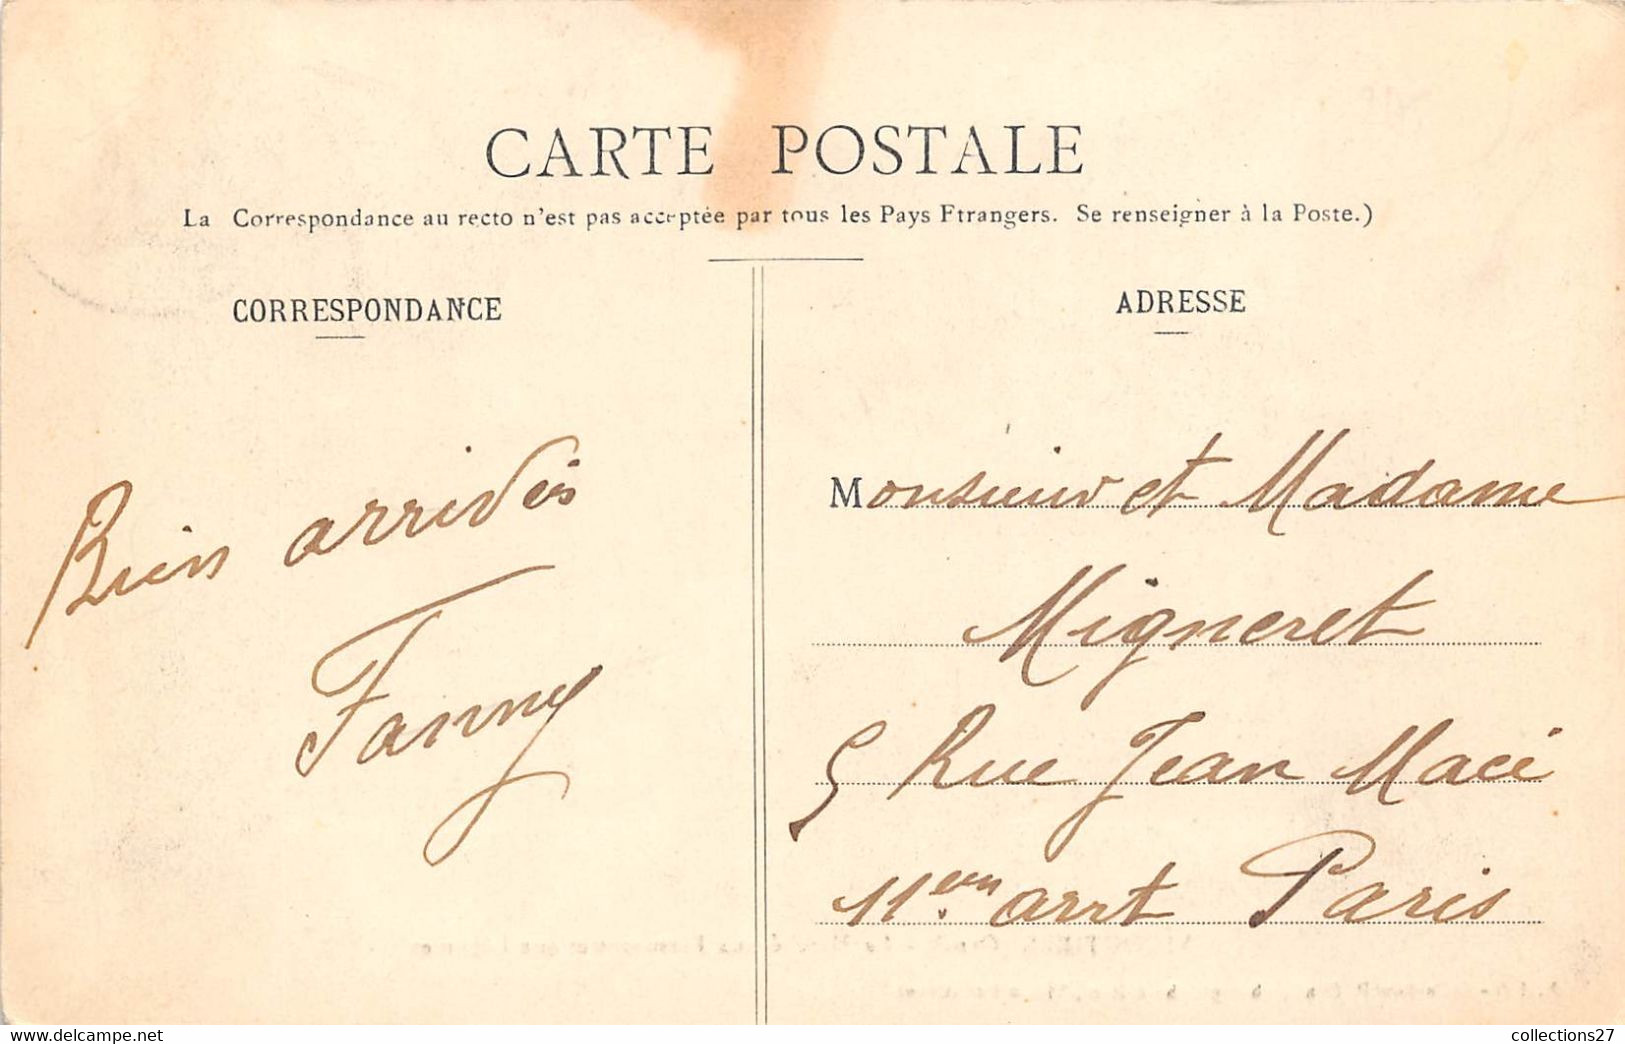 CARTE POSTALE
La Correspondance au recto n'est pas acceptée par tous les Pays Etrangers. Se renseigner à la Poste.)
CORRESPONDANCE
Bien arrivés
Fanny
ADRESSE
Monsieur et Madame
Migneret
5 Rue Jean Macé
11em arrt Paris
delcampe.net
collections27